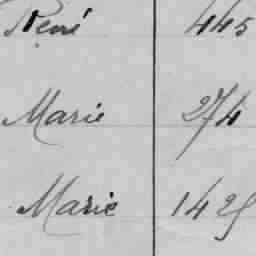 René 445
Marie 274
Marie 1425